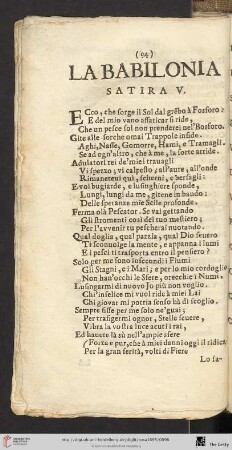 (94)
LA BABILONIA
SATIRA V.
ECco, che sorge il Sol dal grẽbo à Fosforo:
E del mio vano affaticar si ride,
Che un pesce sol non prenderei nel'Bosforo.
Gite alle forche omai Trappole infide.
Aghi, Nasse, Gomorre, Hami, e Tramagli,
Se ad ogn'altro, che à me, la sorte arride.
Adulatori rei de'miei travagli
Vi spezzo, vi calpesto, all'aure, all'onde
Rimanetevi quì, scherni, e bersagli:
E voi bugiarde, e lusinghiere sponde,
Lungi, lungi da me, gitene in bando:
Delle speranze mie Scille profonde.
Ferma olà Pescator. Se vai gettando
Gli stromenti così del tuo mestiero,
Per l'avvenir tu pescherai nuotando.
Qual doglia, qual pazzia, qual Dio severo
Ti sconvolge la mente, e appanna i lumi
E i pesci ti trasporta entro il pensiero?
Solo per me sono infecondi i Fiumi
Gli Stagni, e i Mari; e per lo mio cordoglio
Non han'occhi le Sfere, orecchie i Numi.
Lusingarmi di nuovo Jo più non voglio.
Chi infelice mi vuol ride à miei Lai
Chi giovar mi potria sensi hà di scoglio.
Sempre fisse per me solo ne'guai;
Per trafigermi ognor, Stelle severe,
Vibra la vostra luce acuti rai,
Ed havete là sù nell'ampie sfere
Forze e pur, che à miei danni oggi il ridica
Per la gran ferità, volti di Fiere
Lo sa-